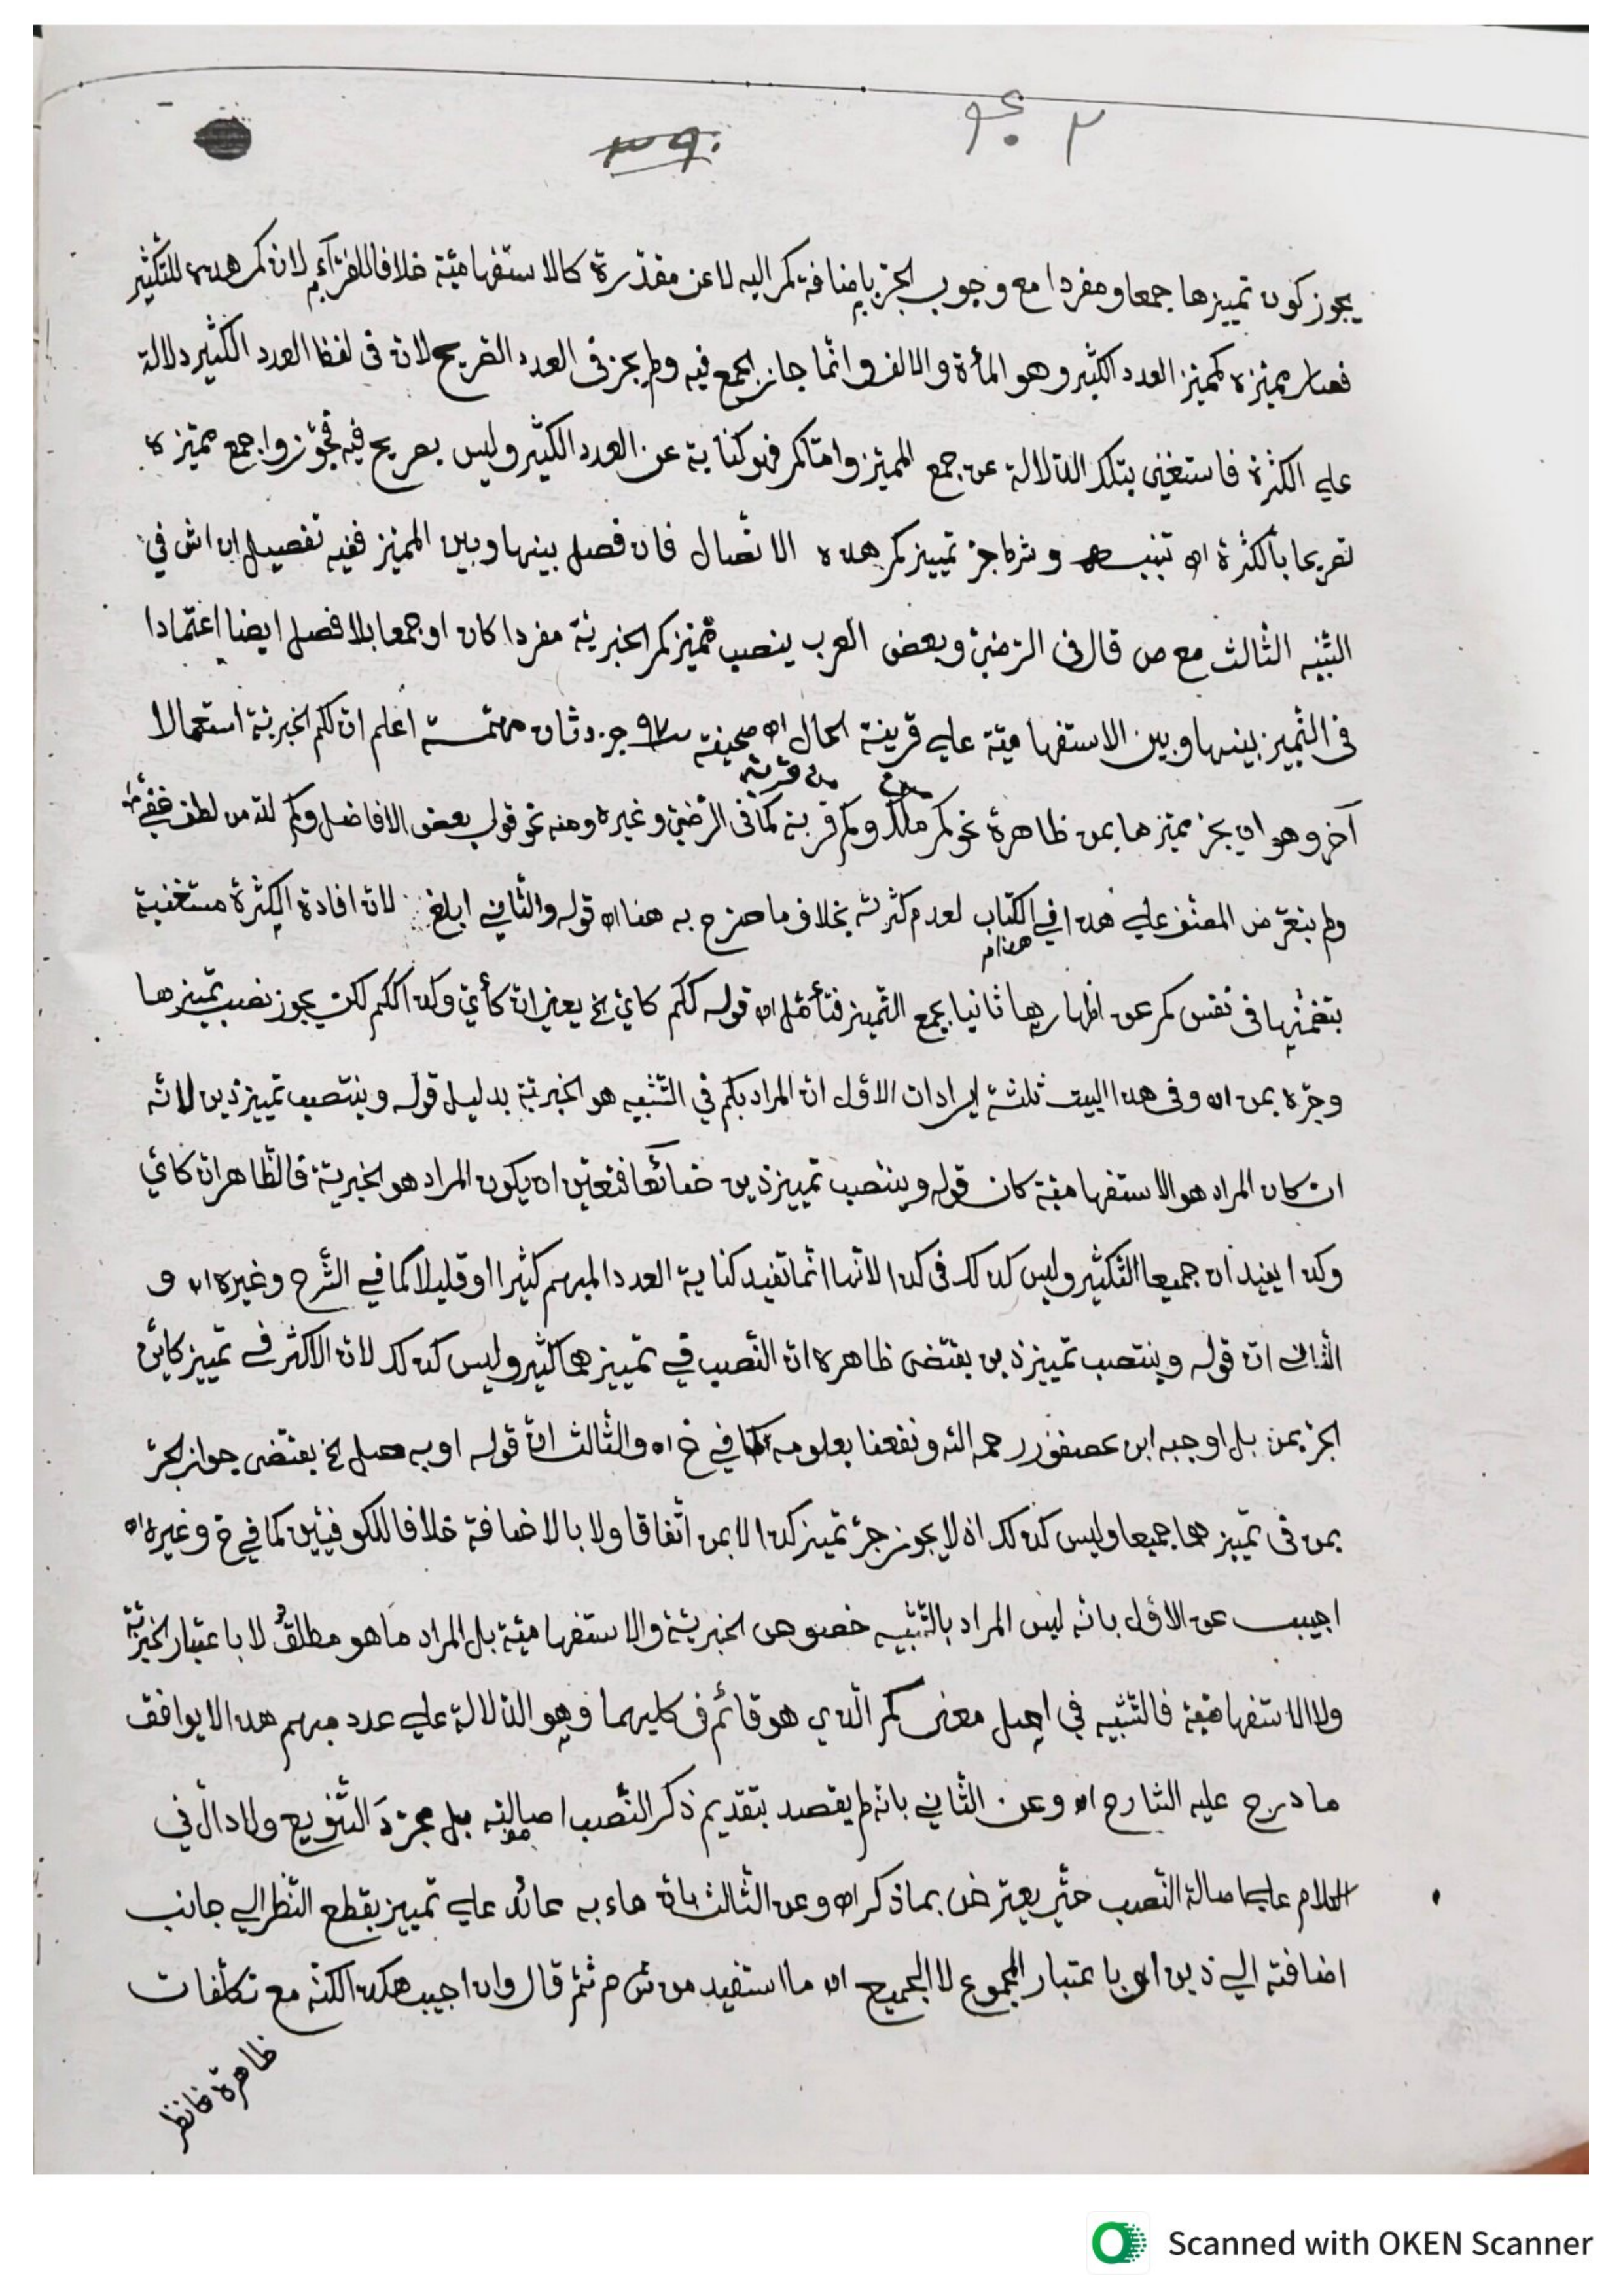 يجوز كون تمييزها جمعا ومفردا مع وجوب الجرّ بإضافة كم اليه لا عن مقدّرة كالاستفهاميّة خلافا للفرّآء لانّ كم هذه للتّكثير
فصار مميّزه كمميّز العدد الكثير وهو المأة والالف وانّما جاز الجمع فيه ولم يجز فى العدد الصّريح لانّ فى لفظ العدد الكثير دلالة
علي الكثرة فاستغنى بتلك الدّلالة عن جمع المميّز وامّا كم فهو كناية عن العدد الكثير وليس بصريح فيه فجوّزوا جمع مميّزه
تصريحا بالكثرة اه تنبيه وشرط جرّ تمييز كم هذه الاتّصال فان فصل بينها وبين المميّز ففيه تفصيل ان اش في
التّنبيه الثّالث مع ص قال فى الرّضيّ وبعض العرب ينصب مميّز كم الخبريّة مفردا كان او جمعا بلا فصل ايضا اعتمادا
فى التّمييز بينها وبين الاستفهاميّة علي قرينة الحال اه صحيفة ٩٧ جزء ثان مهمّة اعلم انّ لكم الخبريّة استعمالا
من قرية
آخر وهو ان يجرّ مميّزها بمن ظاهرة نحو كم ملك وكم قرية كما فى الرّضيّ وغيره ومنه نحو قول بعض الافاضل وكم للّه من لطف خفيّ
ولم يتعرّض المصنّف علي هذا في الكتاب لعدم كثرته بخلاف ما صرّح به هنا اه قوله والثّاني ابلغ لانّ افادة الكثرة مستغنية
بتضمّنها فى نفس كم عن اظهارها ثانيا بجمع التّمييز فتأمّل اه قوله ككم كايّ الخ يعني انّ كأيّ وكذا ككم لكن يجوز نصب تمييزها
وجرّه بمن اه وفى هذا البيت ثلثة ايرادات الاوّل انّ المراد بكم في التّشبيه هو الخبريّة بدليل قوله وينتصب تمييز ذين لانّه
ان كان المراد هو الاستفهاميّة كان قوله وينتصب تمييز ذين ضائعا فتعيّن ان يكون المراد هو الخبريّة فالظّاهر انّ كايّ
وكذا يفيدان جميعا التّكثير وليس كذلك فى كذا لانّها انّما تفيد كناية العدد المبهم كثيرا او قليلا كما في الشّرح وغيره اه و
الثّاني انّ قوله وينتصب تمييز ذين يقتضى ظاهره انّ النّصب في تمييزهما كثير وليس كذلك لانّ الاكثر في تمييز كايّن
الجرّ بمن بل اوجبه ابن عصفور رحمه اللّه ونفعنا بعلومه كما في خ اه والثّالث انّ قوله او به صل الخ يقتضى جواز الجرّ
بمن فى تمييزهما جميعا وليس كذلك اذ لا يجوز جرّ تمييز كذا لا بمن اتّفاقا ولا بالاضافة خلافا للكوفيّين كما في خ وغيره اه
اجيب عن الاوّل بانّه ليس المراد بالتّشبيه خصوص الخبريّة والاستفهاميّة بل المراد ما هو مطلقٌ لا باعتبار الخبريّة
ولا الاستفهاميّة فالتّشبيه في اصل معنى كم الّذي هو قائم فى كليهما وهو الدّلالة علي عدد مبهم هذا لا يوافق
ما درج عليه الشّارح اه وعن الثّاني بانّه لم يقصد بتقديم ذكر النّصب اصالته بل مجرّدَ التّنويع ولا دالّ في
الكلام علي اصالة النّصب حتّى يعترض بما ذكر اه وعن الثّالث بانّ هاء به عائد علي تمييز بقطع النّظر الي جانب
اضافته الي ذين او باعتبار المجموع لا الجميع اه ما استفيد من ش م ثمّ قال وان اجيب هكذا لكنّه مع تكلّفات
ظاهرة فانظر
Scanned with OKEN Scanner